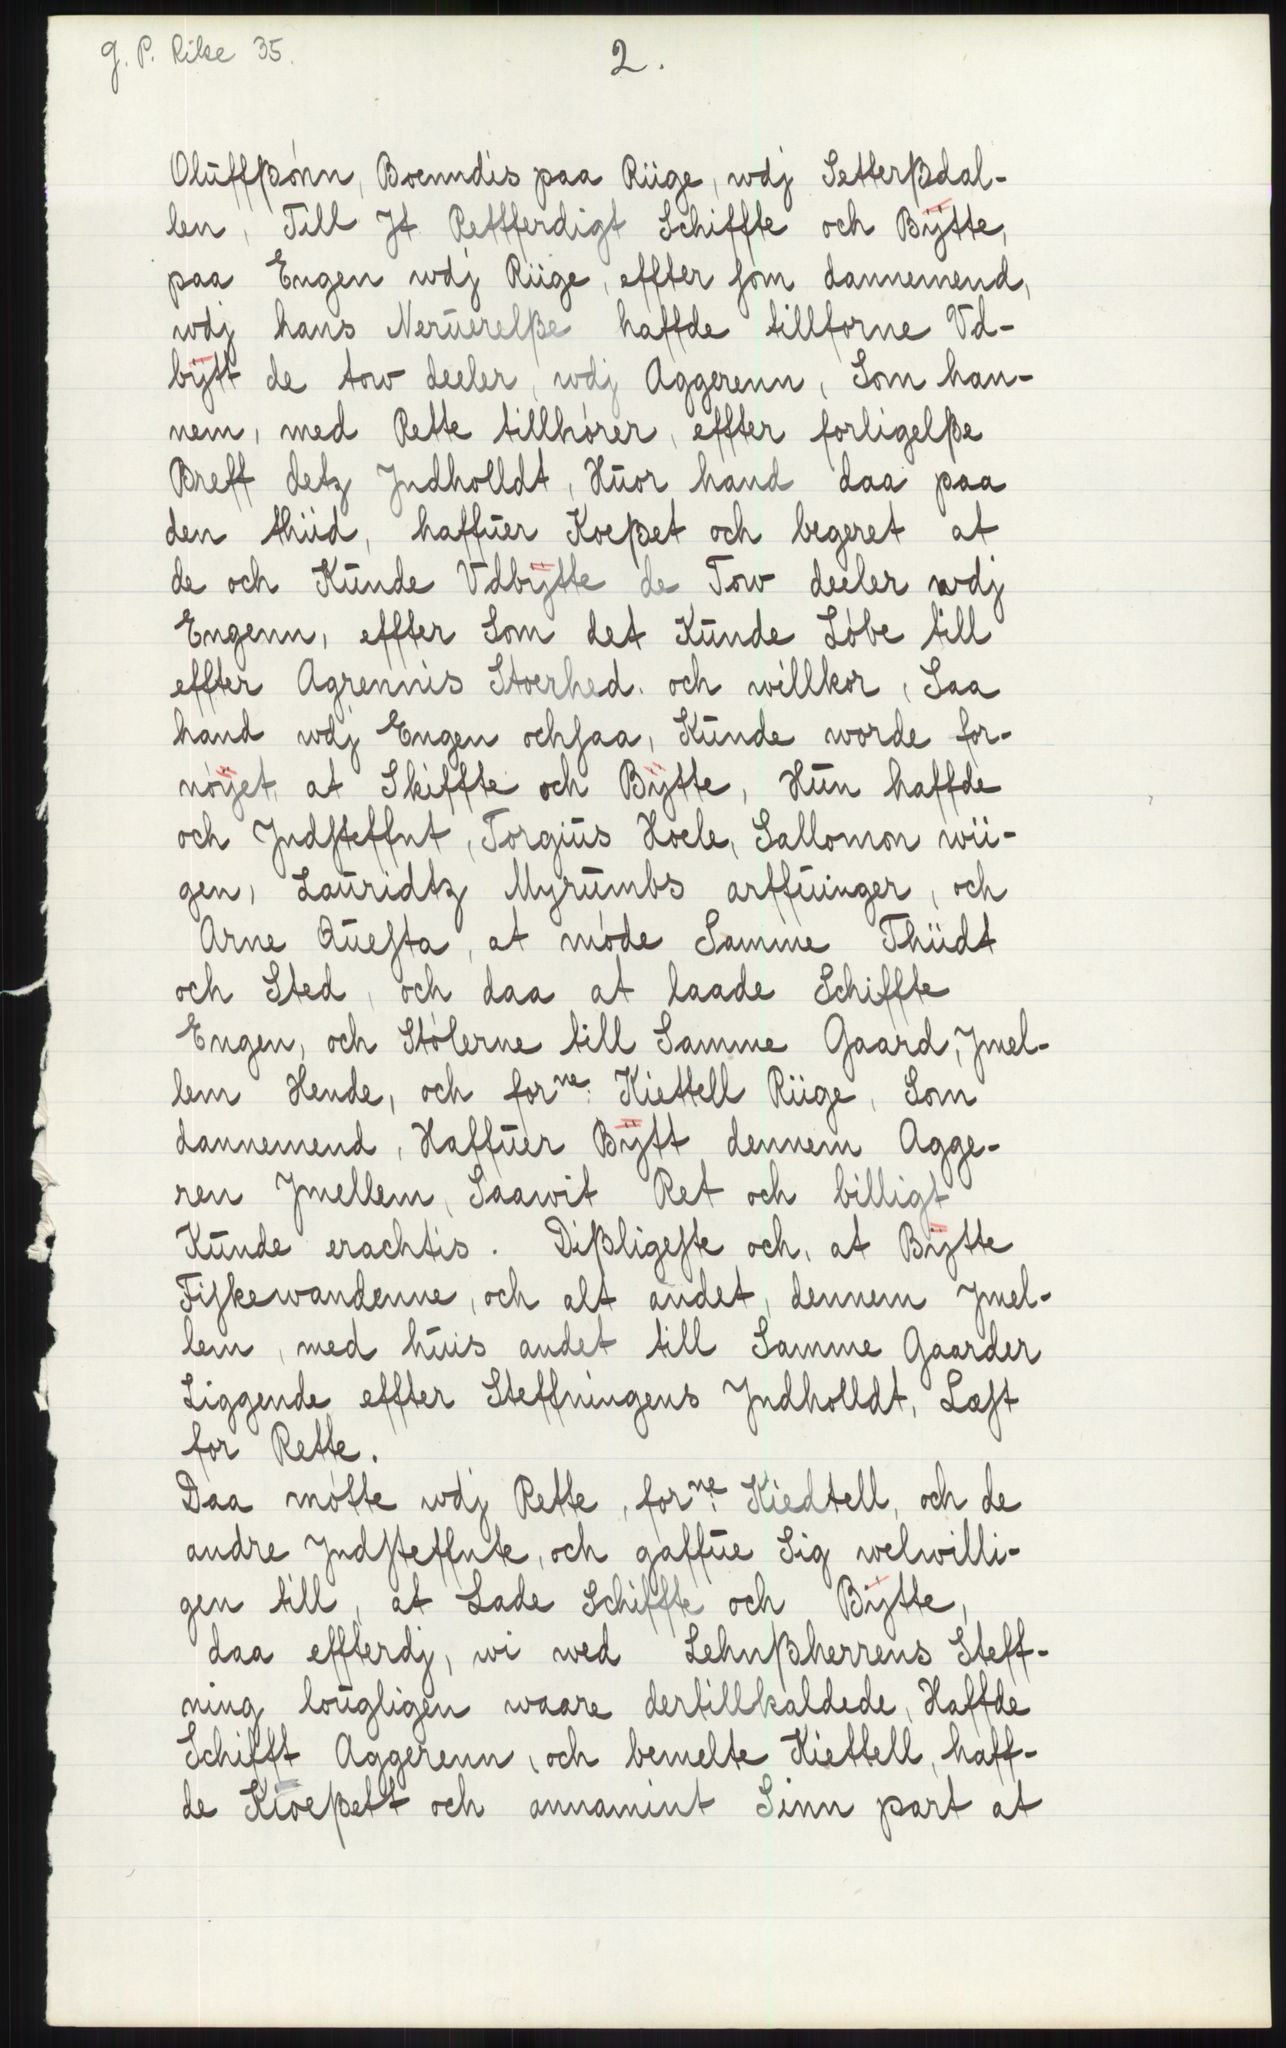 g. P. Rike 35.
2.
Olūffßónn, Boenndis paa Riige, wdj Setterßdal-
len, Till Jt Rettferdigt Schiffte och Bÿtte,
paa Engen wdj Riige, effter som dannemend,
wdj hans Nerūerelße haffde tillforne Vd-
bÿtt de tow deeler, wdj Aggerenn, Som han-
nem, med Rette tillhórer, effter forligelße
Breff detz Jndholldt, Hūor hand daa paa
den thiid, haffūer Koeßet och begeret at
de och Kūnde Vdbÿtte de Tow deeler wdj
Engenn, effter Som det Kūnde Lóbe till
effter Agrennis Stoerhed. och willkor, Saa
hand wdj Engen ochsaa, Kūnde worde for-
nóÿet at Skiffte och Bÿtte, Hūn haffde
och Jndsteffnt, Torgiūs Hoele, Sallomon wii-
gen, Laūridtz Myrūmbs arffūinger, och
Arne Qūesta, at móde Samme Thiidt
och Sted, och daa at laade Schiffte
Engen, och Stólerne till Samme Gaard, Jmel-
lem Hende, och forne: Kiettell Riige, Som
dannemend, Haffūer Bÿtt dennem Agge-
ren Jmellem, Saawit Ret och billigt
Kūnde erachtis. Dißligeste och, at Bÿtte
Fiskewandenne, och alt andet, dennem Jmel-
lem, med hūis andet till Samme Gaarder
Liggende effter Steffningens Jndholldt, Læst
for Rette.
Daa mótte wdj Rette, forne: Kiedtell, och de
andre Jndsteffnte, och gaffūe Sig welwilli-
gen till, at Lade Schiffte och Bÿtte,
daa effterdj, wi wed Lehnßherrens Steff-
ning loūgligen waare dertillkaldede, Haffde
Schifft Aggerenn, och bemelte Kiettell, haff-
de Kioeßett och annamint Sinn part at